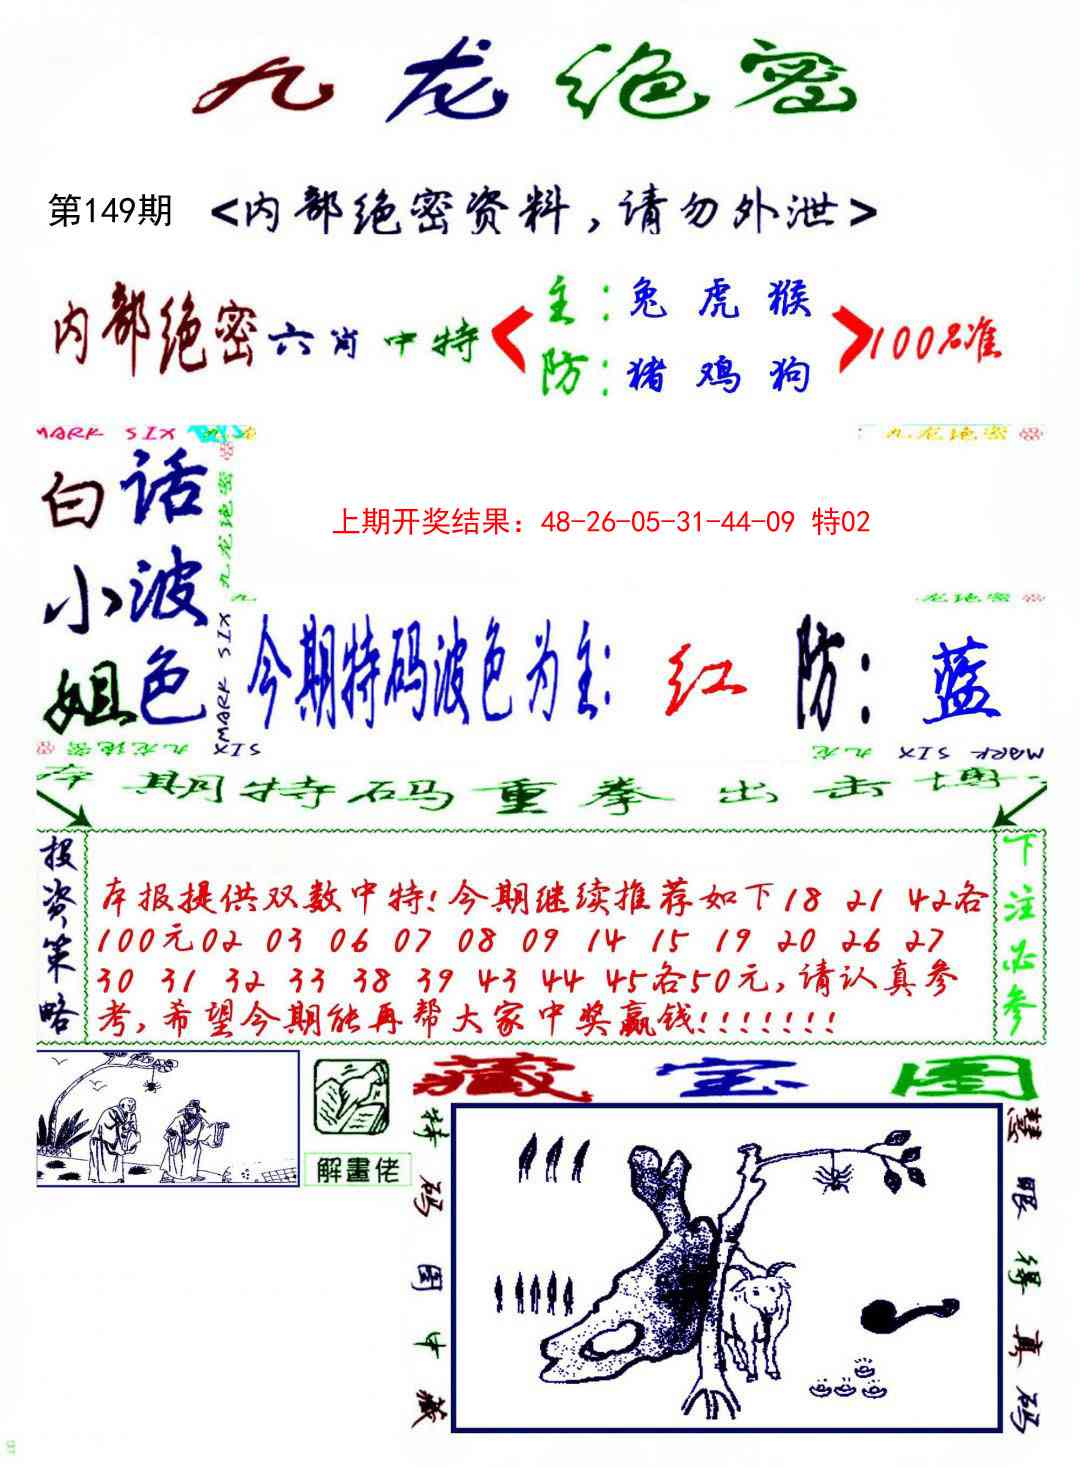 九龙绝密
第149期 <内部绝密资料,请勿外泄>
内部绝密六肖中特
主:兔 虎 猴
防:猪 鸡 狗
100%准
MARK SIX
九龙绝密
白话
小波
姐色
九龙绝密
MARK SIX
上期开奖结果：48-26-05-31-44-09 特02
龙绝密
今期特码波色为主: 红 防: 蓝
九龙绝密
MARK SIX
九龙
MARK SIX
本期特码重拳出击博
投资策略
本报提供双数中特!今期继续推荐如下18 21 42各
100元02 03 06 07 08 09 14 15 19 20 26 27
30 31 32 33 38 39 43 44 45各50元,请认真参
考,希望今期能再帮大家中奖赢钱!!!!!!!
下注必参
解畫佬
藏宝图
特码图中藏
慧眼得真码